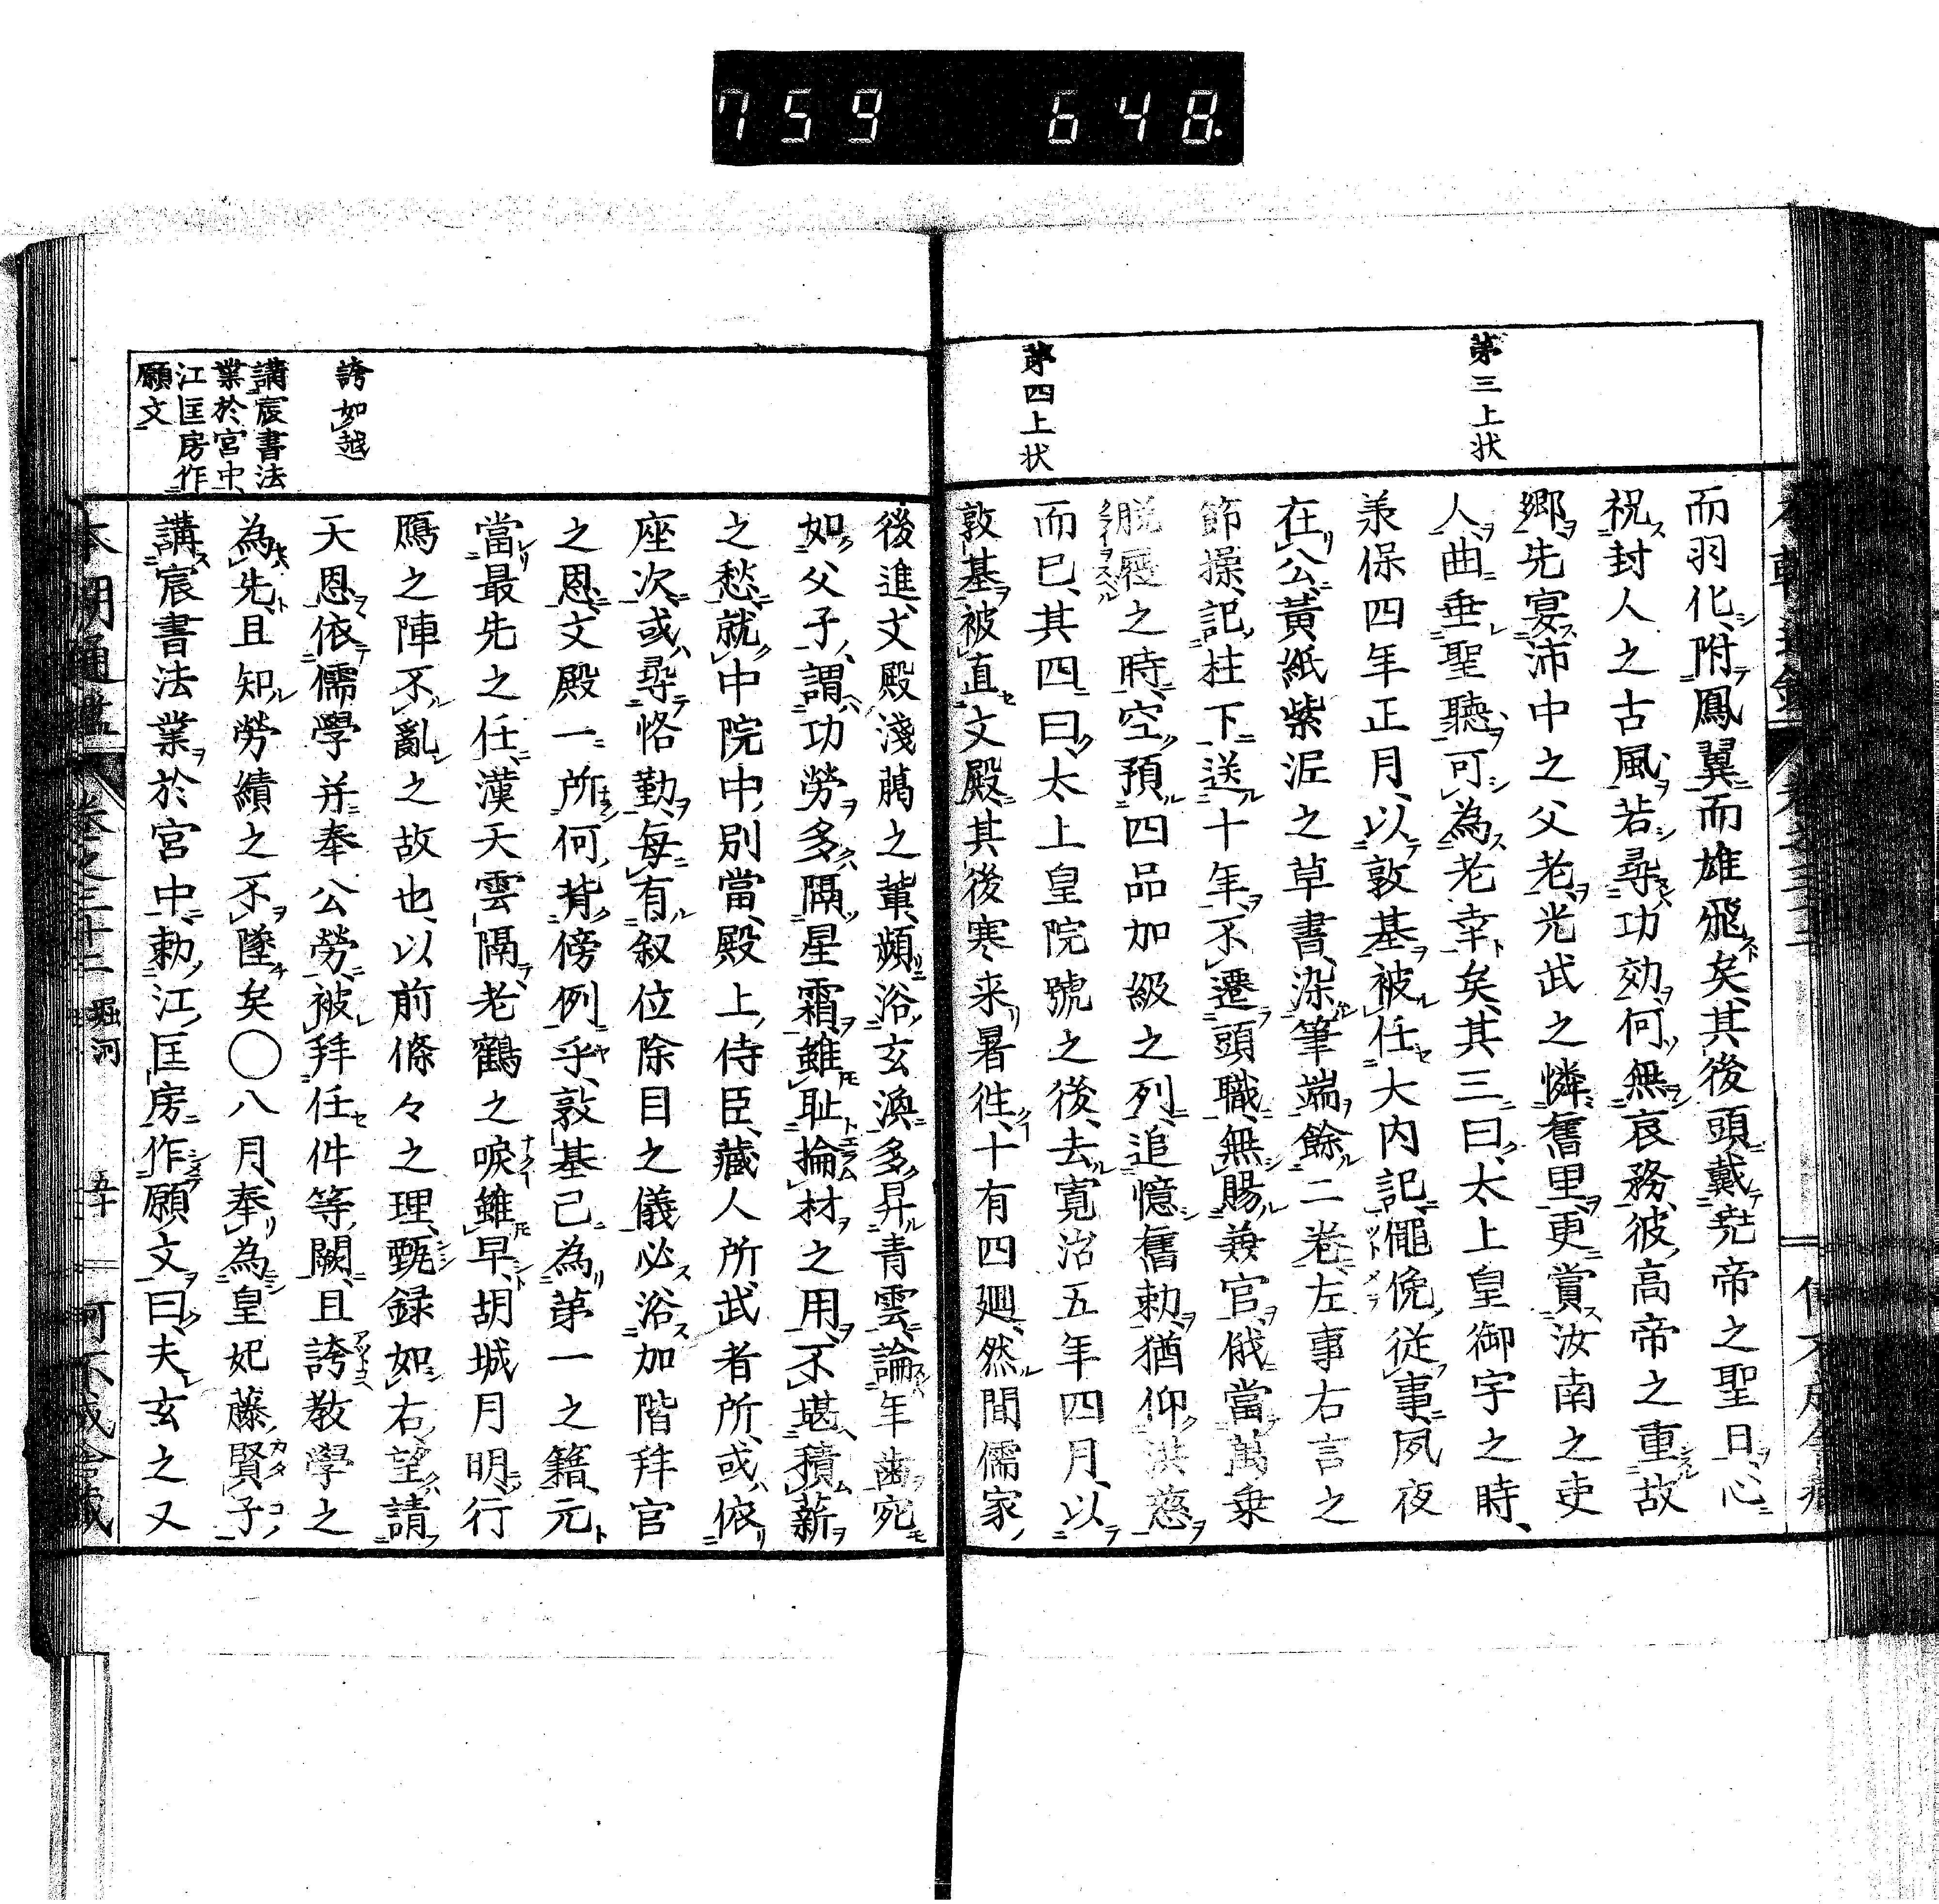 759 648
第三上状
第四上状
而羽化、附鳳翼而雄飛矣、其後頭戴尭帝之聖日、心
祝封人之古風、若尋功効、何無哀務、彼高帝之重故
郷、先宴沛中之父老、光武之憐舊里、更賞汝南之吏
人、曲垂聖聽、可為老幸矣、其三曰、太上皇御宇之時、
兼保四年正月、以敦基被任大内記、僶俛從事、夙夜
在公、黃紙紫泥之草書、染筆端餘二巻、左事右言之
節操、記柱下送十年、不遷頭職、無賜兼官、俄當萬乗
脱屣之時、空預四品加級之列、追憶舊勅、猶仰洪慈
而已、其四曰、太上皇院號之後、去寛治五年四月、以
敦基被直文殿、其後寒来暑徃、十有四廻、然間儒家
誇如越
講宸書法
業於宮中、
江匡房作
願文
後進、文殿淺﨟之輩、頻浴玄渙、多昇青雲、論年齒宛
如父子、謂功勞多隔星霜、雖耻掄材之用、不堪積薪
之愁、就中院中別當、殿上侍臣、藏人所、武者所、或依
座次、或尋恪勤、毎有叙位除目之儀、必浴加階拜官
之恩、文殿一所何背傍例乎、敦基已為第一之籍、元
當最先之任、漢天雲隔、老鶴之唳雖早、胡城月明、行
鴈之陣不亂之故也、以前條々之理、甄録如右、望請
天恩、依儒學并奉公勞、被拜任件等闕、且誇教學之
為先、且知勞績之不墜矣〇八月、奉為皇妃藤賢子、
講宸書法業於宮中、勅江匡房作願文曰、夫玄之又
本朝通鑑 巻之三十二 堀河 五十